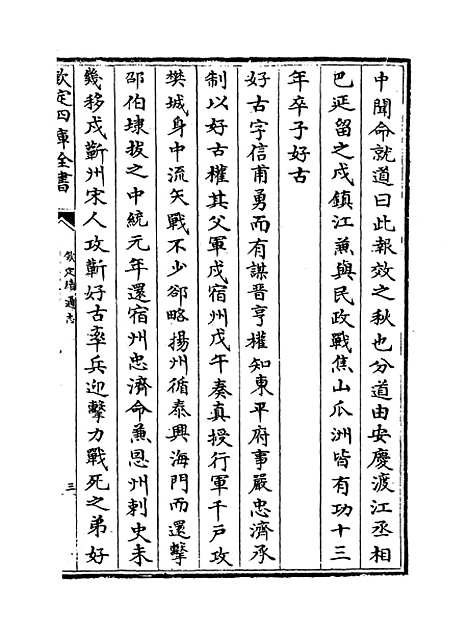 中聞命就道曰此報效之秋也分道由安慶渡江丞相
巴延留之戍鎮江兼與民政戰焦山瓜洲皆有功十三
年卒子好古
好古字信甫勇而有謀晉亨權知東平府事嚴忠濟承
制以好古權其父軍戍宿州戊午奏真授行軍千戶攻
樊城身中流矢戰不少郤略揚州循泰興海門而還擊
邵伯埭拔之中統元年還宿州忠濟命兼恩州刺史未
幾移戍蘄州宋人攻蘄好古率兵迎擊力戰死之弟好
欽定四庫全書
欽定續通志
三